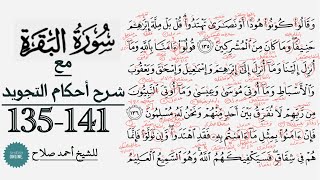 سُورَةُ البَقَرَةِ
مع
شرح أحكام التجويد
135-141
للشيخ أحمد صلاح
وَقَالُوا۟ كُونُوا۟ هُودًا أَوْ نَصَٰرَىٰ تَهْتَدُوا۟ قُلْ بَلْ مِلَّةَ إِبْرَٰهِۦمَ
حَنِيفًا وَمَا كَانَ مِنَ ٱلْمُشْرِكِينَ ١٣٥ قُولُوٓا۟ ءَامَنَّا بِٱللَّهِ وَمَآ
أُنزِلَ إِلَيْنَا وَمَآ أُنزِلَ إِلَىٰٓ إِبْرَٰهِۦمَ وَإِسْمَٰعِيلَ وَإِسْحَٰقَ وَيَعْقُوبَ
وَٱلْأَسْبَاطِ وَمَآ أُوتِىَ مُوسَىٰ وَعِيسَىٰ وَمَآ أُوتِىَ ٱلنَّبِيُّونَ
مِن رَّبِّهِمْ لَا نُفَرِّقُ بَيْنَ أَحَدٍ مِّنْهُمْ وَنَحْنُ لَهُۥ مُسْلِمُونَ ١٣٦
فَإِنْ ءَامَنُوا۟ بِمِثْلِ مَآ ءَامَنتُم بِهِۦ فَقَدِ ٱهْتَدَوا۟ وَّإِن تَوَلَّوْا۟ فَإِنَّمَا
هُمْ فِى شِقَاقٍ فَسَيَكْفِيكَهُمُ ٱللَّهُ وَهُوَ ٱلسَّمِيعُ ٱلْعَلِيمُ